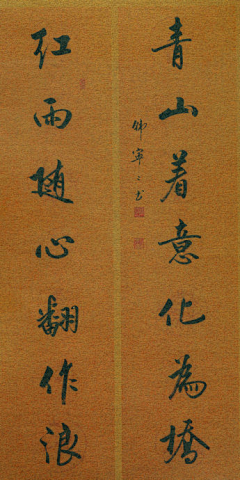 青山着意化為橋
红雨随心翻作浪